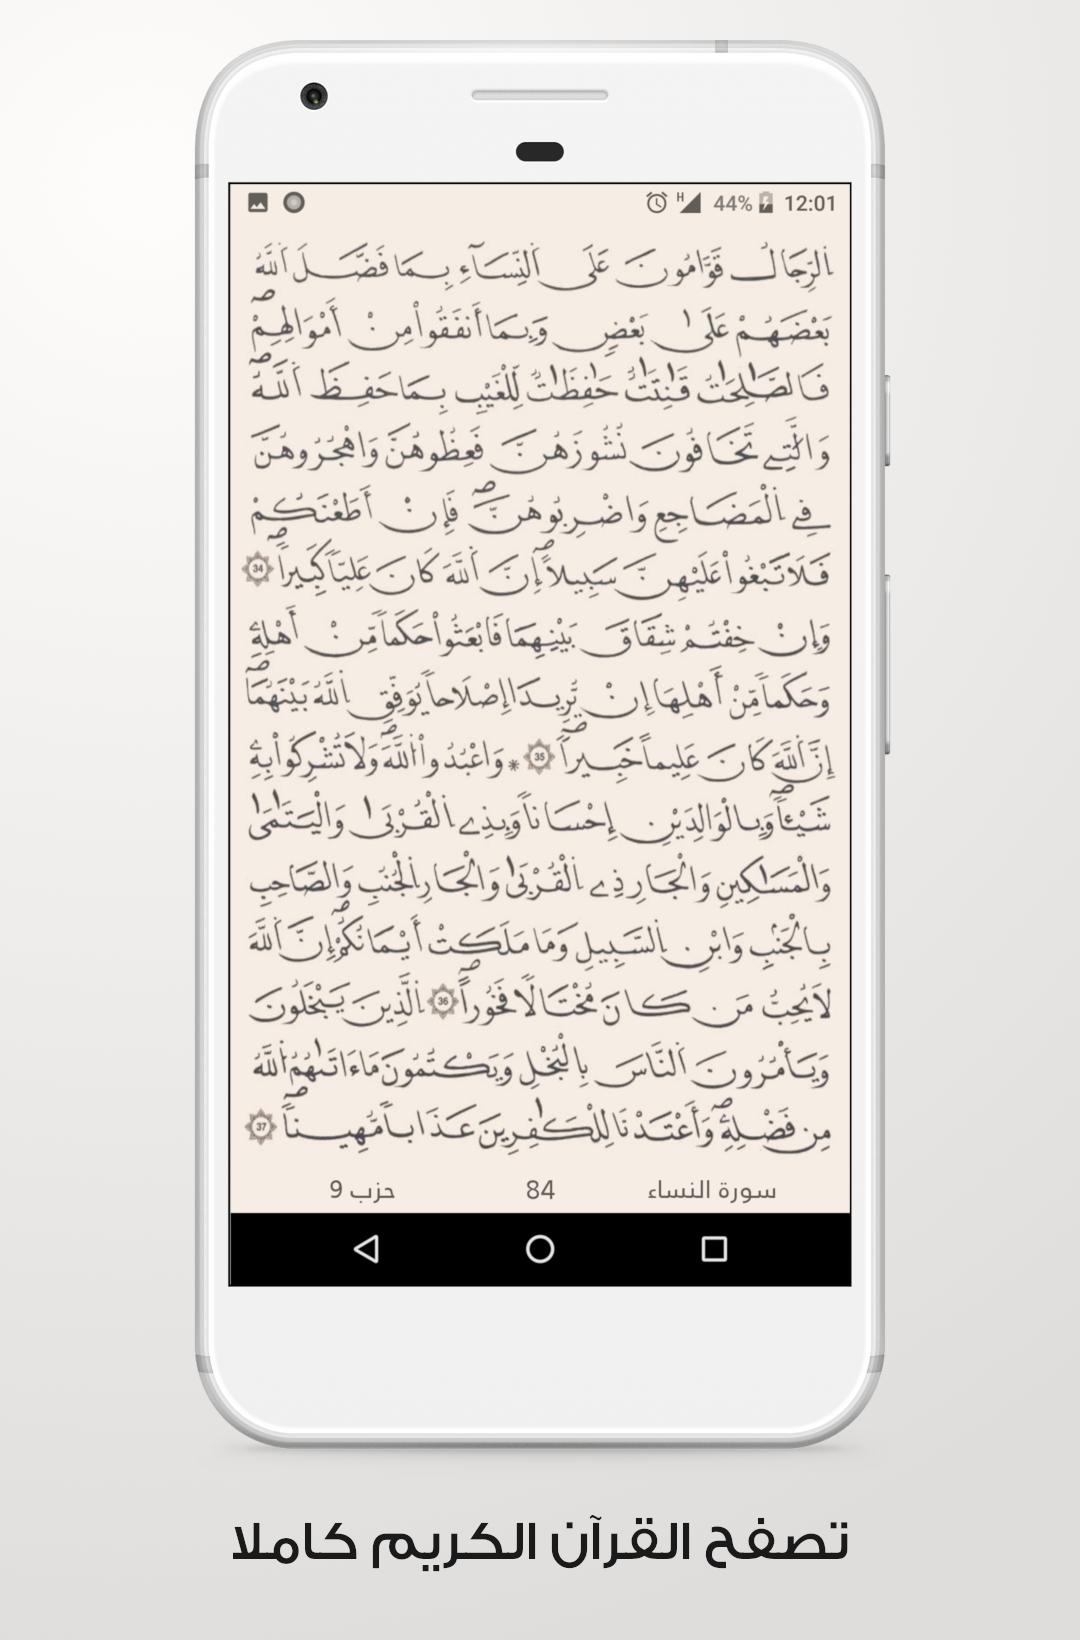 44% 12:01
اَ۬لرِّجَالُ قَوَّٰمُونَ عَلَى اَ۬لنِّسَآءِ بِمَا فَضَّلَ اَ۬للَّهُ
بَعْضَهُمْ عَلَىٰ بَعْضٖ وَبِمَا أَنفَقُواْ مِنْ أَمْوَالِهِمْۖ
فَالصَّٰلِحَٰتُ قَٰنِتَٰتٌ حَٰفِظَٰتٌ لِّلْغَيْبِ بِمَا حَفِظَ اَ۬للَّهُۖ
وَالَّٰتِے تَخَافُونَ نُشُوزَهُنَّ فَعِظُوهُنَّ وَاهْجُرُوهُنَّ
فِے اِ۬لْمَضَاجِعِ وَاضْرِبُوهُنَّۖ فَإِنْ أَطَعْنَكُمْ
فَلَا تَبْغُواْ عَلَيْهِنَّ سَبِيلاًۖ إِنَّ اَ۬للَّهَ كَانَ عَلِيّاٗ كَبِيراٗۖ 34
وَإِنْ خِفْتُمْ شِقَاقَ بَيْنِهِمَا فَابْعَثُواْ حَكَماٗ مِّنْ أَهْلِهِۦ
وَحَكَماٗ مِّنْ أَهْلِهَا إِنْ يُّرِيدَا إِصْلَٰحاٗ يُوَفِّقِ اِ۬للَّهُ بَيْنَهُمَاۖ
إِنَّ اَ۬للَّهَ كَانَ عَلِيماً خَبِيراٗۖ 35 * وَاعْبُدُواْ اُ۬للَّهَ وَلَا تُشْرِكُواْ بِهِۦ
شَيْـٔاٗۖ وَبِالْوَٰلِدَيْنِ إِحْسَاناٗ وَبِذِے اِ۬لْقُرْبَىٰ وَالْيَتَٰمَىٰ
وَالْمَسَٰكِينِ وَالْجَارِ ذِے اِ۬لْقُرْبَىٰ وَالْجَارِ اِ۬لْجُنُبِ وَالصَّاحِبِ
بِالْجَنۢبِ وَابْنِ اِ۬لسَّبِيلِ وَمَا مَلَكَتْ أَيْمَٰنُكُمْۖ إِنَّ اَ۬للَّهَ
لَا يُحِبُّ مَن كَانَ مُخْتَالاٗ فَخُوراًۖ 36 اِ۬لذِينَ يَبْخَلُونَ
وَيَأْمُرُونَ اَ۬لنَّاسَ بِالْبُخْلِ وَيَكْتُمُونَ مَا ءَاتَىٰهُمُ اُ۬للَّهُ
مِن فَضْلِهِۦۖ وَأَعْتَدْنَا لِلْكَٰفِرِينَ عَذَاباٗ مُّهِيناٗۖ 37
سورة النساء 84 حزب 9
تصفح القرآن الكريم كاملا